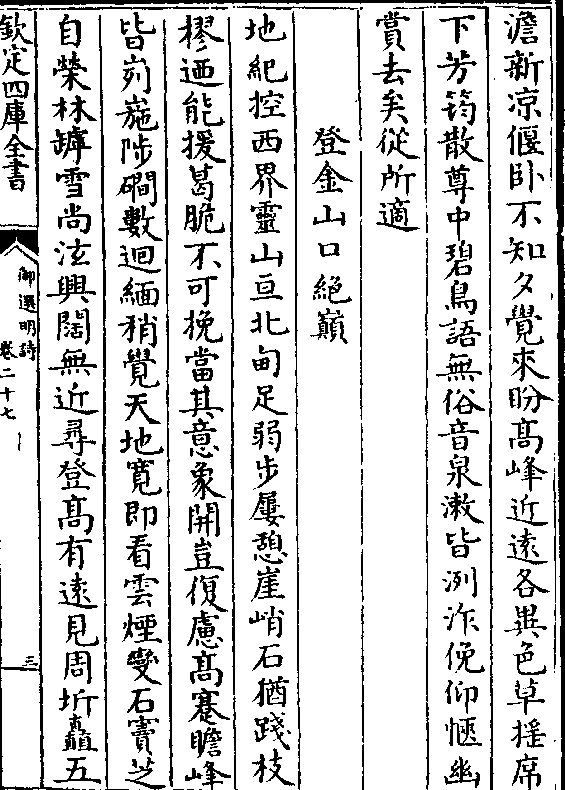 澹新凉偃卧不知夕覺來盼髙峰近遠各異色草揺席
下芳筠散尊中碧鳥語無俗音泉漱皆洌泎俛仰愜幽
賞去矣從所適
登金山口絶巔
地紀控西界靈山亘北甸足弱步屢憩崖峭石猶踐枝
樛迺能援葛脆不可挽當其意象開豈復慮髙蹇瞻峰
皆峛崺陟磵數迴緬稍覺天地寛即看雲煙變石竇芝
自榮林罅雪尚泫興闊無近尋登髙有遠見周圻矗五
欽定四庫全書
御選明詩
卷二十七
三